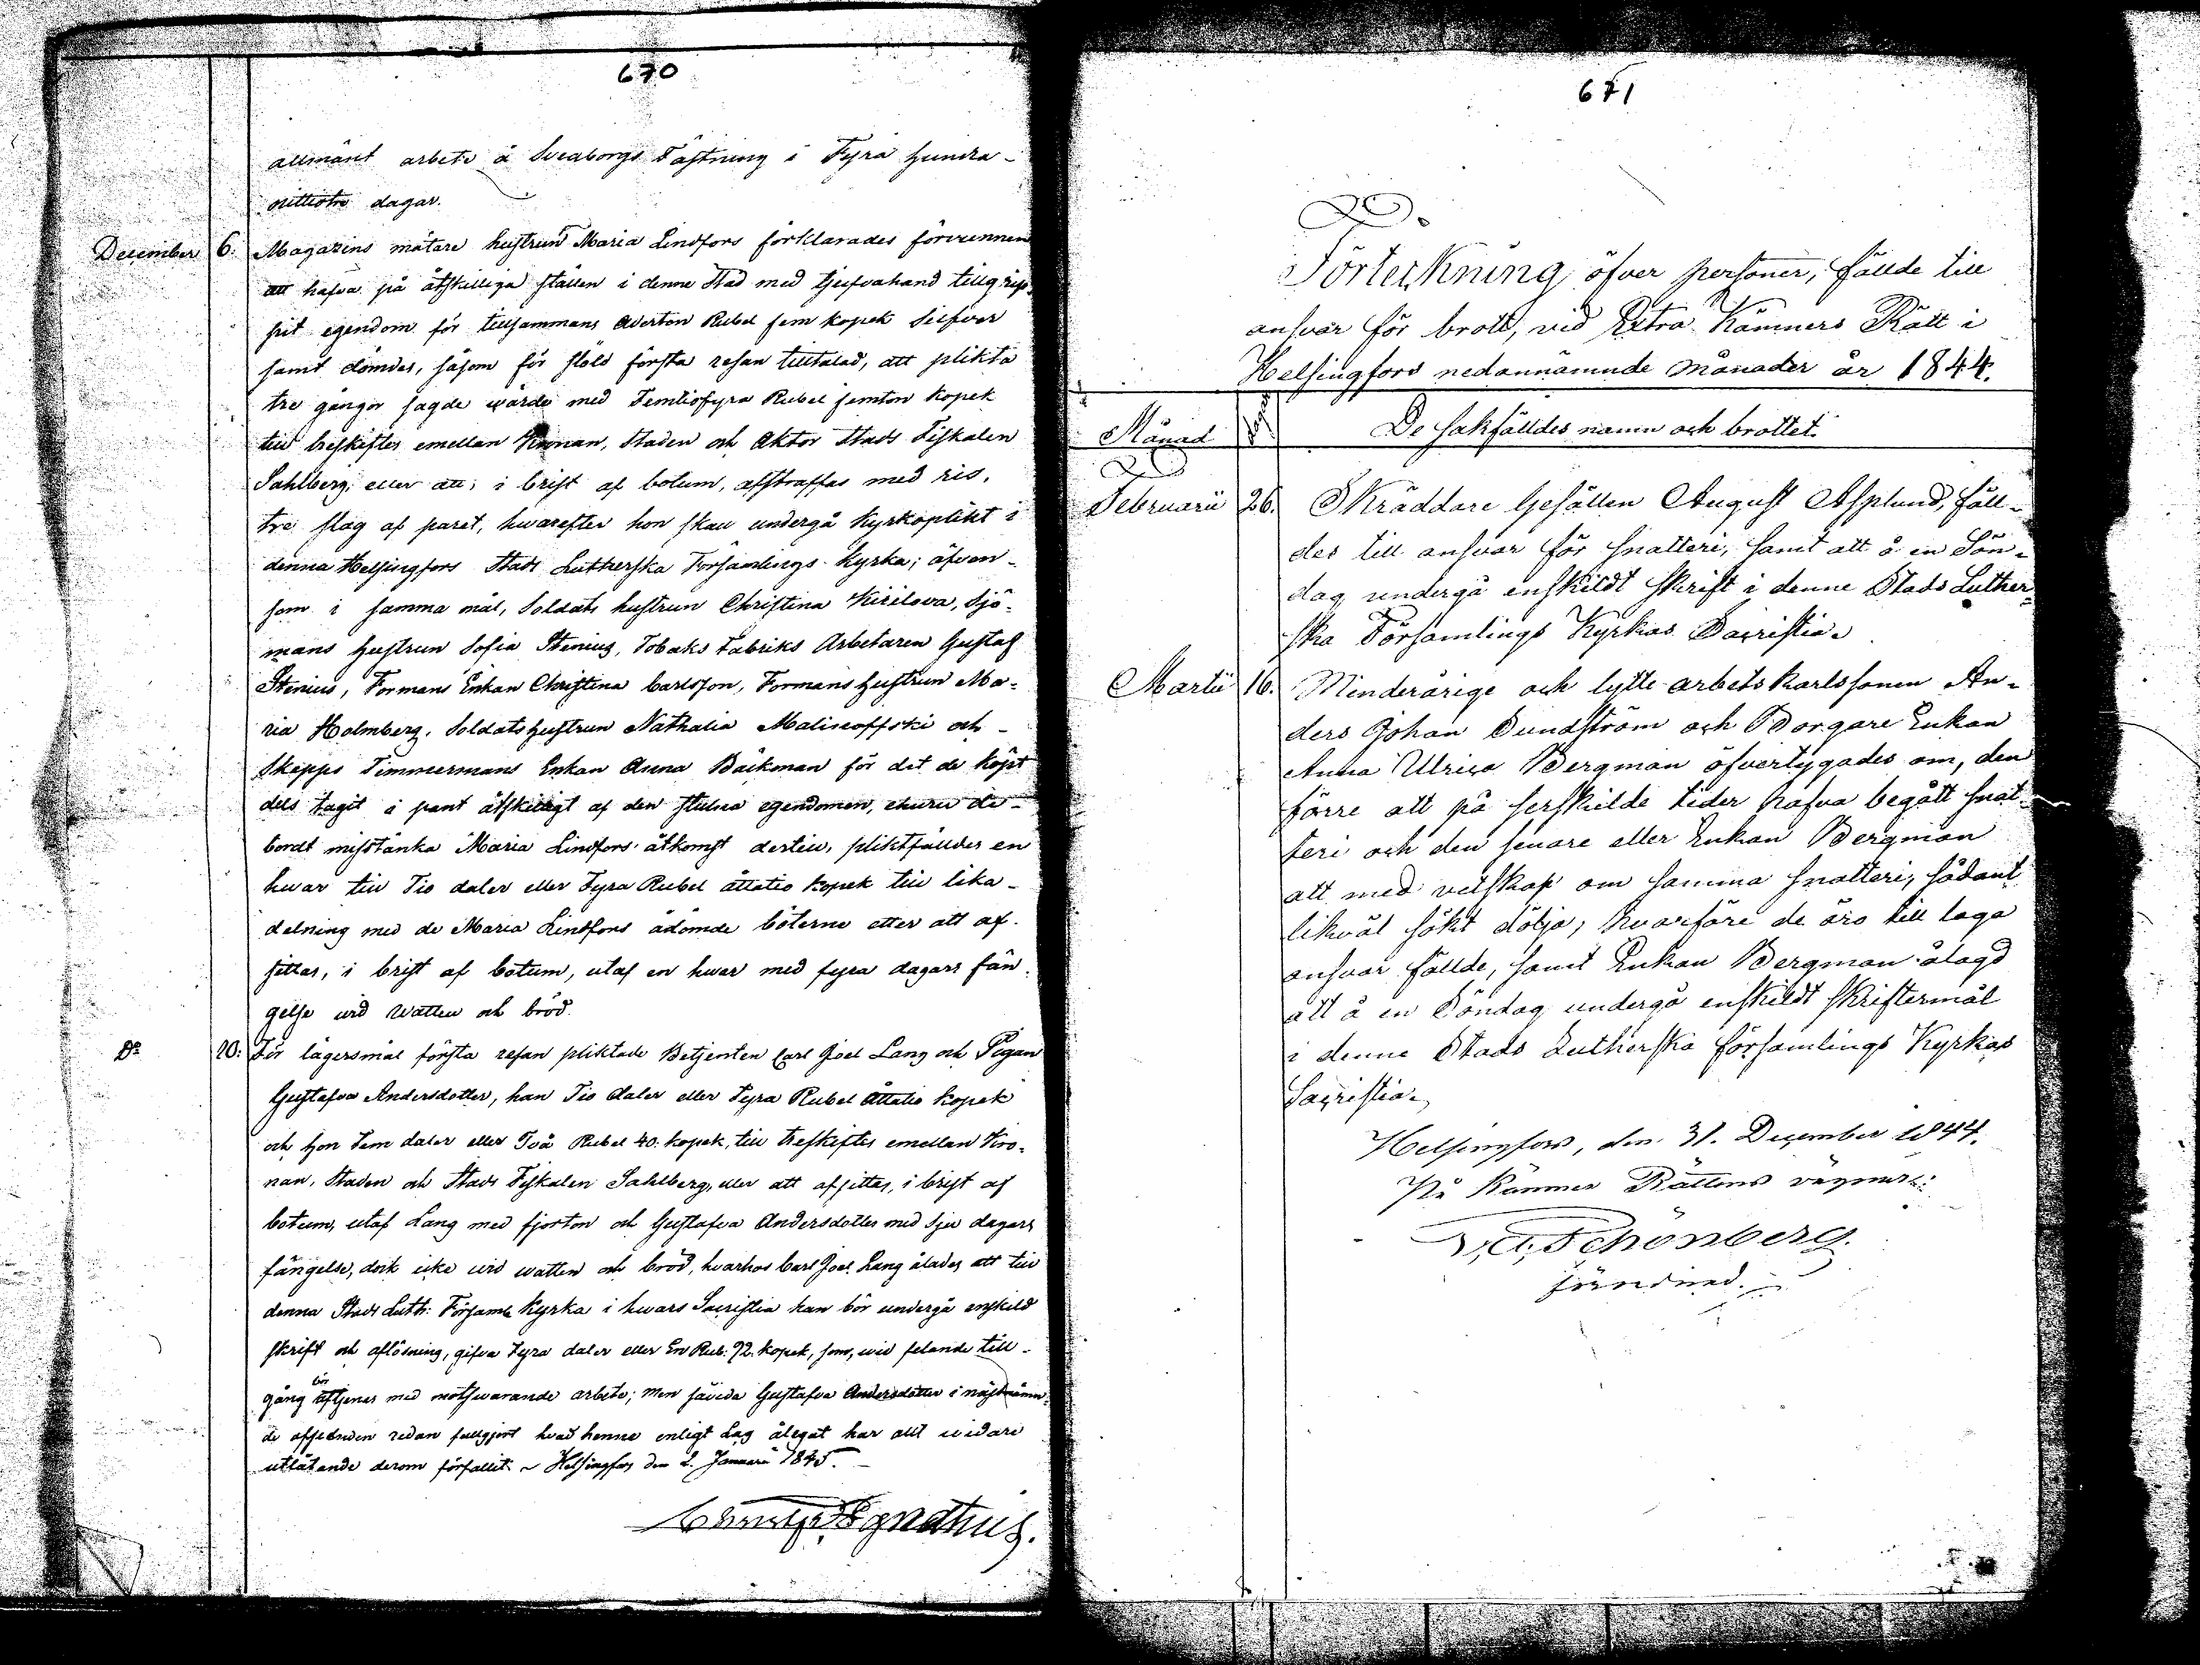 670
allmänt arbete å Sveaborgs Fästning i Fyra hundra-
nittiotre dagar.
December 6. Magazins mätare hustrun Maria Lindfors förklarades förvunnen
att hafva på åtskilliga ställen i denne Stad med tjufvahand tillgrip-
pit egendom för tillsammans Aderton Rubel fem kopek Silfver
samt dömdes, såsom för stöld första resan tilltalad, att plikta
tre gånger sagde wärde med Femtiofyra Rubel femton kopek
till treskiftes emellan Kronan, Staden och Aktor Stads Fiskalen
Sahlberg, eller att, i brist af botum, afstraffas med ris,
tre slag af paret, hwarefter hon skall undergå kyrkoplikt i
denna Helsingfors Stads Lutherska Församlings Kyrka; äfven-
som i samma mål, Soldats hustrun Christina Kirilova, Sjö-
mans hustrun Sofia Stenius, Tobaks Fabriks Arbetaren Gustaf
Stenius, Formans Enkan Christina Carlsson, Formans hustrun Ma-
ria Holmberg, Soldats hustrun Nathalia Malinoffski och
Skepps Timmermans Enkan Anna Bäckman för det de köpt
dels tagit i pant åtskilligt af den stulna egendomen, ehuru de
bordt misstänka Maria Lindfors' åtkomst dertill, pliktfälldes en
hwar till Tio daler eller Fyra Rubel åttatio kopek till lika
delning med de Maria Lindfors ådömde böterne eller att af-
sittas, i brist af botum, utaf en hwar med fyra dagars fän-
gelse wid watten och bröd.
Do 20. För lägersmål första resan pliktade Betjenten Carl Joel Lang och Pigan
Gustafva Andersdotter, han Tio daler eller Fyra Rubel åttatio kopek
och hon Fem daler eller Två Rubel 40. kopek, till treskiftes emellan Kro-
nan, Staden och Stads Fiskalen Sahlberg, eller att afsittas, i brist af
botum, utaf Lang med fjorton och Gustafva Andersdotter med sju dagars
fängelse, dock icke wid watten och bröd, hvarhos Carl Joel Lang ålades att till
denna Stads Luth: Församls Kyrka i hwars Sacristia han bör undergå enskild
skrift och aflösning, gifva Fyra daler eller En Rub: 92. kopek, som, wid felande till-
gång bör aftjenas med motswarande arbete; men såvida Gustafva Andersdotter i nästnämn-
de afseenden redan fullgjort hwad henne enligt Lag ålegat har allt widare
utlåtande derom förfallit. Helsingfors den 2. Januarii 1845.
Ignatius.
671
Förteckning öfver personer, fällde till
answar för brott, vid Extra Kämners Rätt i
Helsingfors nedannämnde månader år 1844.
Månad De sakfälldes namn och brottet.
Februarii 26. Skräddare Gesällen August Asplund, fäll-
des till ansvar för snatteri, samt att å en Sön-
dag undergå enskildt skrift i denne Stads Luther-
ska Församlings Kyrkas Sacristia.
Martii 16. Minderårige och lytte arbetskarlssonen An-
ders Johan Sundström och Borgare Enkan
Anna Ulrica Bergman öfvertygades om, den
förre att på serskilde tider hafva begått snat-
teri och den senare eller Enkan Bergman
att med vetskap om samma snatteri, sådant
likväl sökt dölja; hvarföre de äro till laga
ansvar fällde, samt Enkan Bergman ålagd
att å en Söndag undergå enskildt skriftermål
i denne Stads Lutherska församlings Kyrkas
Sacristia.
Helsingfors, den 31. December 1844.
På Kämners Rättens vägnar:
Schönberg.